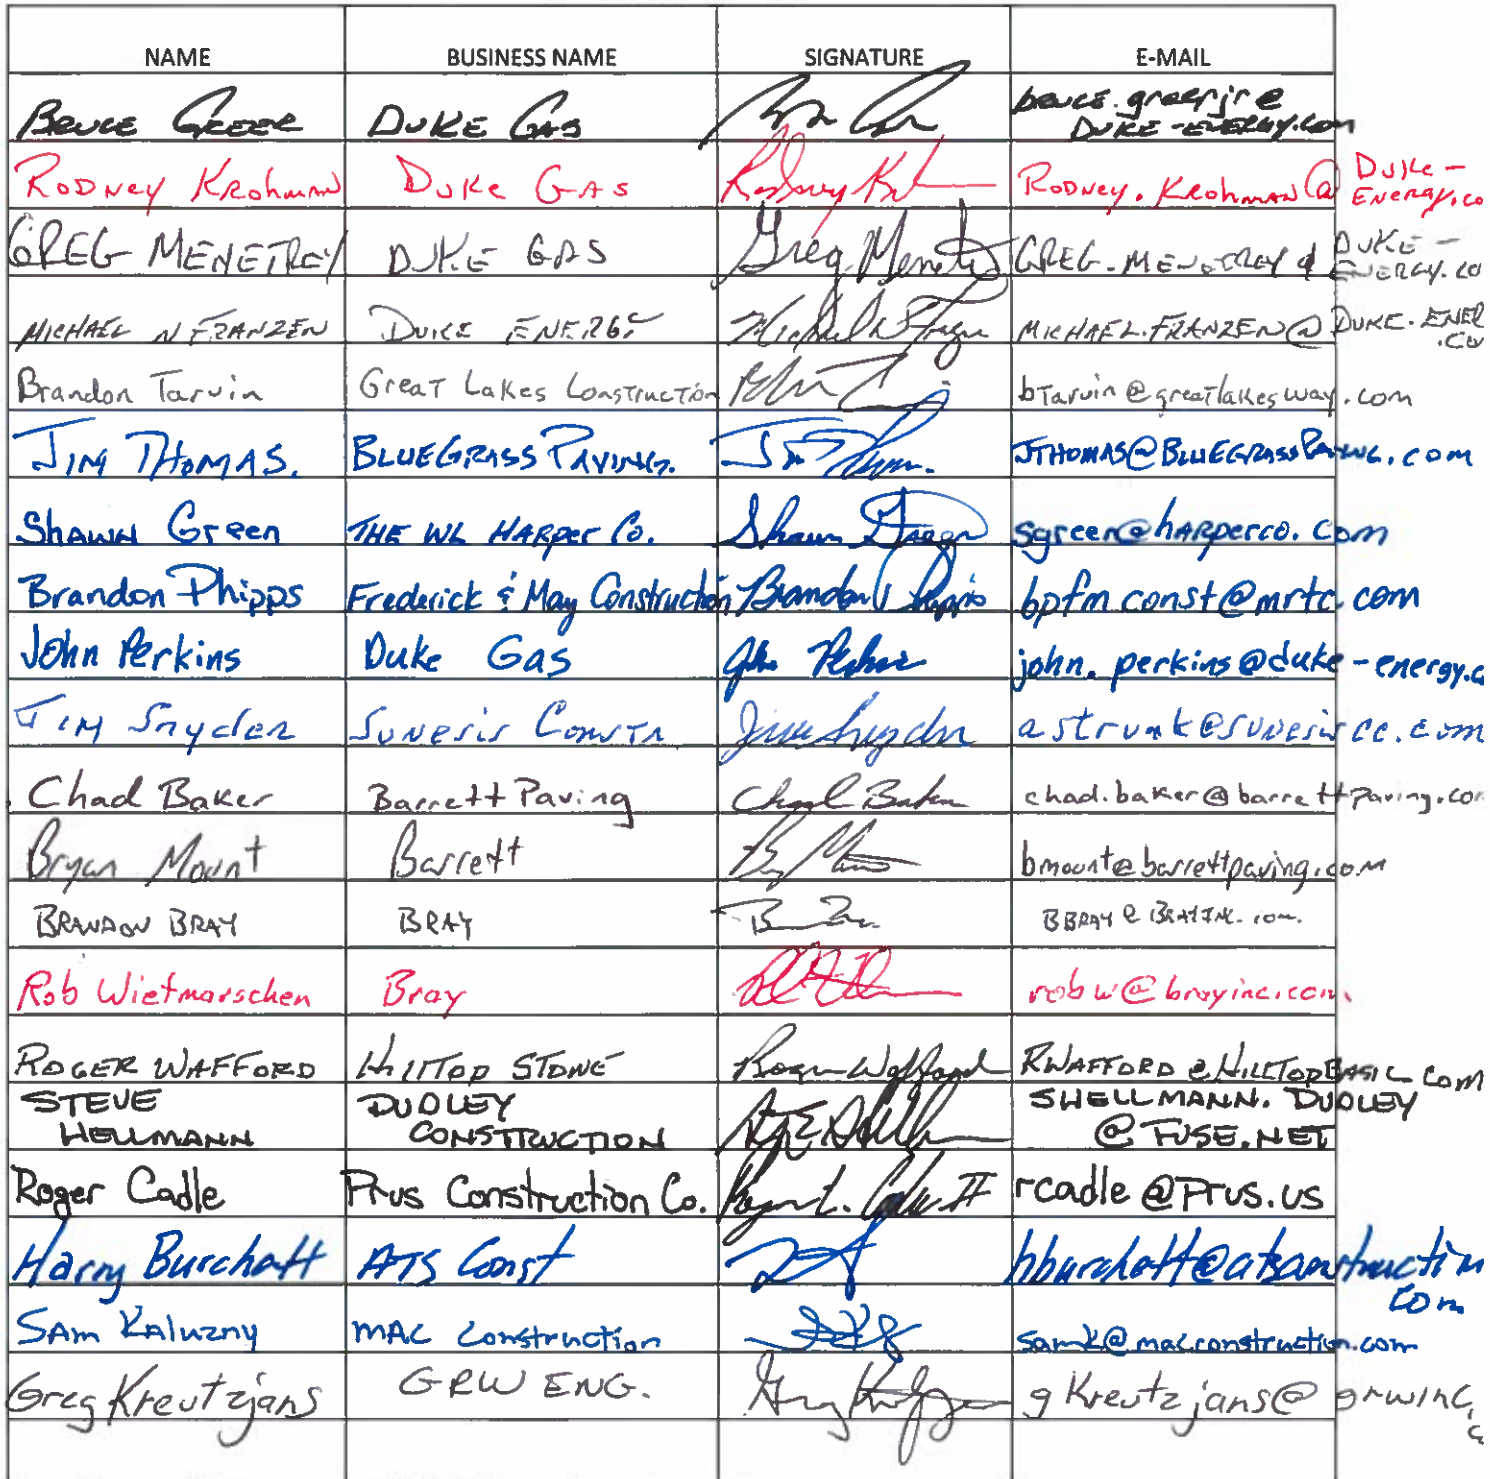 NAME BUSINESS NAME SIGNATURE E-MAIL
BRUCE GREER DUKE GAS bruce.greerjr@
DUKE-ENERGY.com
RODNEY KROHMAN DUKE GAS Rodney RODNEY.KROHMAN@ DUKE-
ENERGY.co
GREG MENETREY DUKE GAS Greg GREG.MENETREY@ DUKE-
ENERGY.co
MICHAEL N FRANZEN DUKE ENERGY Michael N MICHAEL.FRANZEN@ DUKE.ENER
.co
Brandon Tarvin Great Lakes Construction bTarvin@greatlakesway.com
JIM THOMAS. BLUEGRASS PAVING. JTHOMAS@BLUEGRASSPAVING.com
SHAWN Green THE WL HARPER Co. Shawn Green sgreen@harperco.com
Brandon Phipps Frederick & May Construction Brandon Phipps bpfm.const@mrtc.com
John Perkins Duke Gas John Perkins john.perkins@duke-energy.c
JIM Snyder Sunesis Constr Jim Snyder astrunk@sunesiscc.com
Chad Baker Barrett Paving Chad Baker chad.baker@barrettpaving.co
Bryan Mount Barrett bmount@barrettpaving.com
BRANDON BRAY BRAY BBRAY@BRAYINC.com.
Rob Wietmarschen Bray robw@brayinc.com
ROGER WAFFORD HILLTOP STONE Roger Wafford RWAFFORD@HILLTOPBASIC.com
STEVE
HELLMANN DUDLEY
CONSTRUCTION SHELLMANN.DUDLEY
@FUSE.NET
Roger Cadle Prus Construction Co. Roger L. Cadle II rcadle@Prus.us
Harry Burchett ATS Const hburchett@atsconstruction
com
SAM KALUZNY MAC Construction samk@macconstruction.com
Greg Kreutzjans GRW ENG. gKreutzjans@grwinc.
c